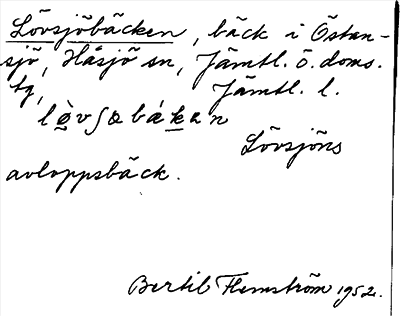 Lövsjöbäcken, bäck i Östan-
sjö, Håsjö sn, Jämtl. ö. doms.
tg, Jämtl. l.
lø̀vʃøbɛ́kən
Lövsjöns
avloppsbäck.
Bertil Flemström 1952.